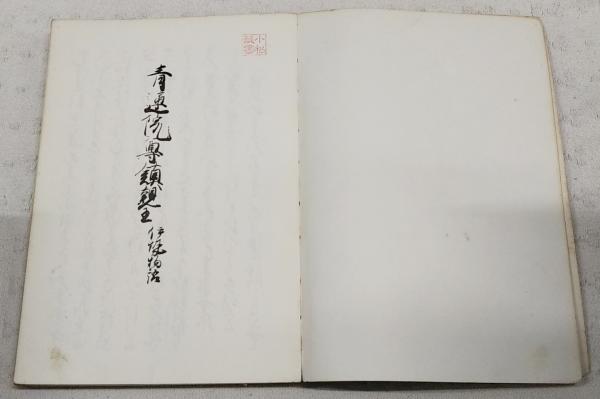 青蓮院尊鎮親王 伊勢物語